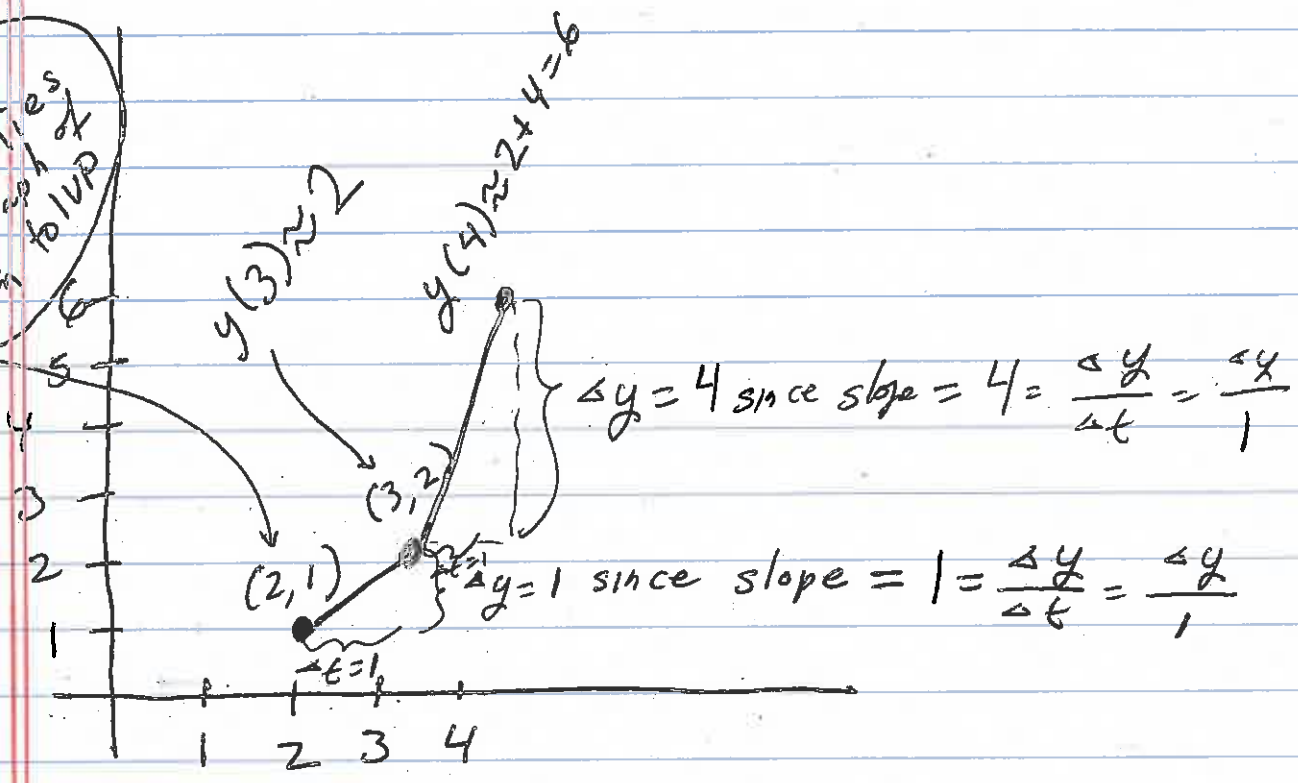 to IVP
y(3) ≈ 2
y(4) ≈ 2 + 4 = 6
6
5
4
3
2
1
Δy = 4 since slope = 4 = Δy/Δt = Δy/1
(3,2)
Δt=1
(2,1)
Δy = 1 since slope = 1 = Δy/Δt = Δy/1
Δt=1
1 2 3 4